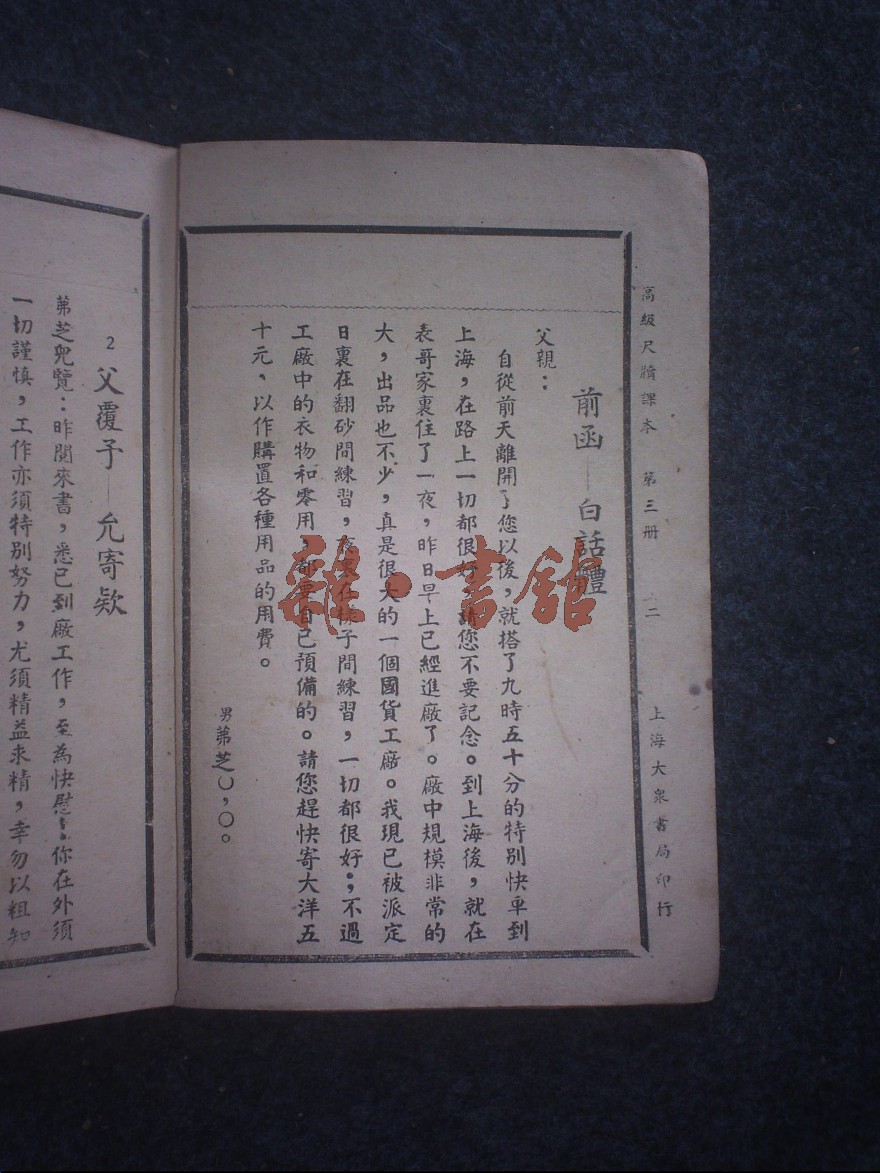 高級尺牘課本 第三册 二 上海大衆書局印行
前函—白話體
父親：
自從前天離開了您以後，就搭了九時五十分的特別快車到
上海，在路上一切都很好，請您不要記念。到上海後，就在
表哥家裏住了一夜，昨日早上已經進廠了。廠中規模非常的
大，出品也不少，真是很大的一個國貨工廠。我現已被派定
日裏在翻砂間練習，夜裏在樣子間練習，一切都很好；不過
工廠中的衣物和零用，都要自己預備的。請您趕快寄大洋五
十元、以作購置各種用品的用費。
男苐芝○，○。
2 父覆子—允寄欵
苐芝兒覽：昨閱來書，悉已到廠工作，至為快慰！你在外須
一切謹慎，工作亦須特別努力，尤須精益求精，幸勿以粗知
雜·書館